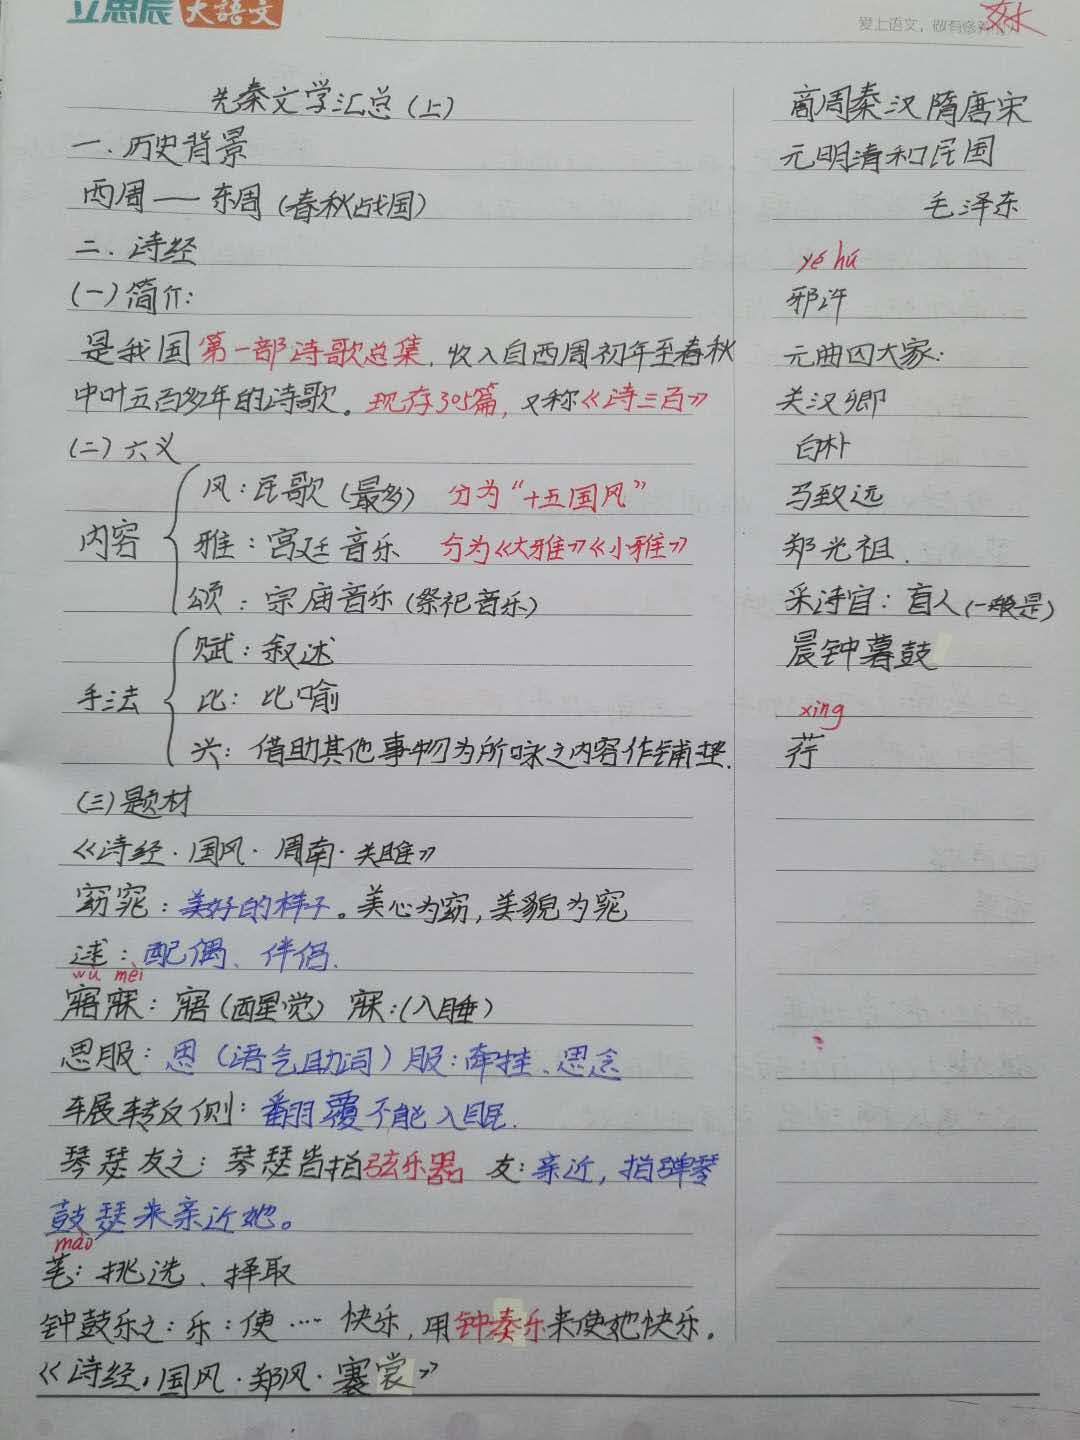 立思辰大语文
爱上语文，做有修养的人
先秦文学汇总(上)
一.历史背景
西周——东周(春秋战国)
二.诗经
(一)简介:
是我国第一部诗歌总集.收入自西周初年至春秋
中叶五百多年的诗歌。现存305篇,又称《诗三百》
(二)六义
内容
风:民歌(最多) 分为"十五国风"
雅:宫廷音乐 分为《大雅》《小雅》
颂:宗庙音乐(祭祀音乐)
手法
赋:叙述
比:比喻
兴:借助其他事物为所咏之内容作铺垫.
(三)题材
《诗经·国风·周南·关雎》
窈窕:美好的样子。美心为窈,美貌为窕
逑:配偶、伴侣.
wù mèi
寤寐:寤(醒觉) 寐:(入睡)
思服:思(语气助词)服:牵挂、思念
辗转反侧:翻覆不能入眠.
琴瑟友之:琴瑟皆指弦乐器 友:亲近,指弹琴
鼓瑟来亲近她。
mào
芼:挑选、择取
钟鼓乐之:乐:使…快乐,用钟奏乐来使她快乐.
《诗经·国风·郑风·褰裳》
商周秦汉隋唐宋
元明清和民国
毛泽东
yé hú
邪许
元曲四大家:
关汉卿
白朴
马致远
郑光祖.
采诗官:盲人(一般是)
晨钟暮鼓
xìng
荇